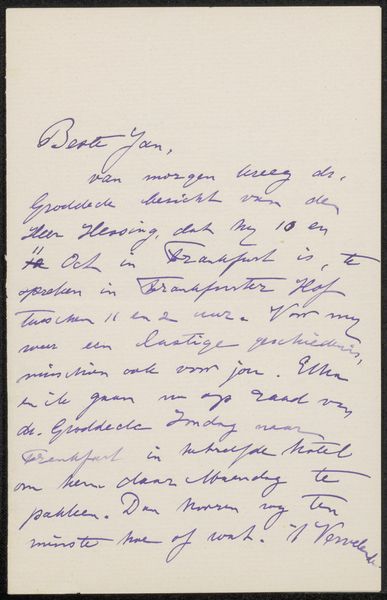 Beste Jan,
van morgen kreeg dr.
Groddeck bericht van den
Heer Hessing, dat hij 10 en
11 Oct in Frankfurt is, te
spreken in Frankfurter Hof
tusschen 11 en 2 uur. Voor mij
weer een lastige geschiedenis,
misschien ook voor jou.
en ik gaan nu op raad van
dr. Groddeck Zondag naar
Frankfurt in hetzelfde hotel
om hem daar Maandag te
pakken. Dan hooren wij ten
minste hoe of wat. 't